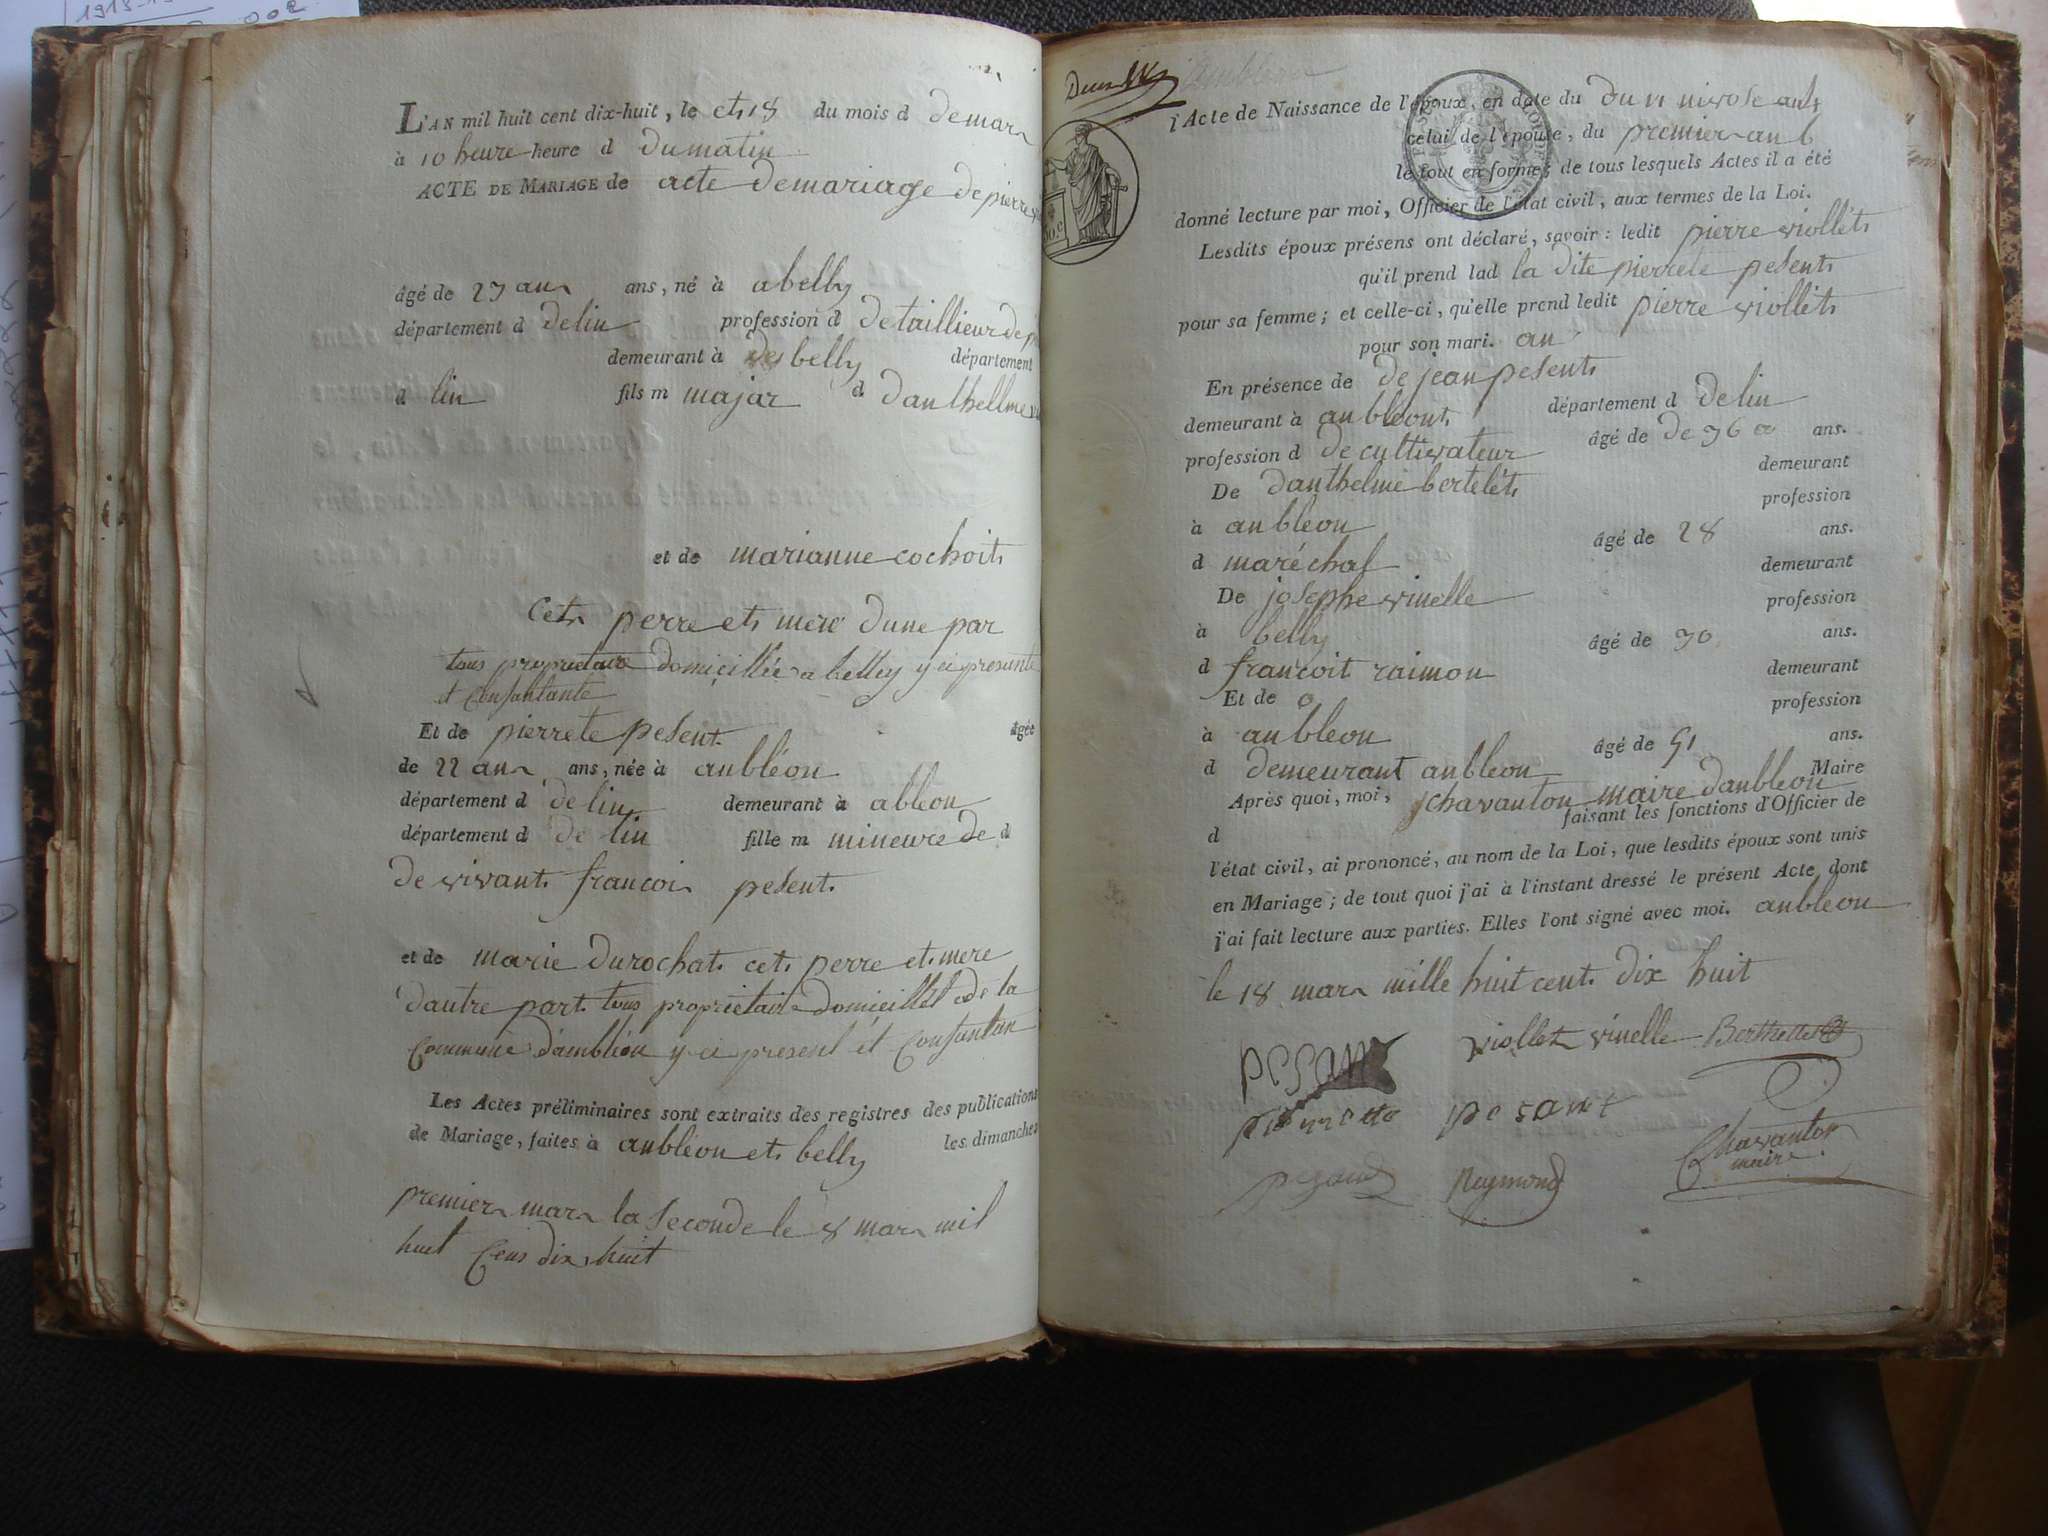 1918-1
L'AN mil huit cent dix-huit, le et 18 du mois d demars
à 10 heure heure d dumatin
ACTE DE MARIAGE de acte demariage de pierre
âgé de 27 ans ans, né à abelly
département d delin profession d detaillieur de
demeurant à de belly département
d lin fils m majar d danthellme
et de marianne cochoit
Cet perre et mere dune par
tous proprietaire domicillée a belley y ci presente
et Consantante
Et de pierrete pesent âgée
de 22 ans ans, née à anbléon
département d delin demeurant à ableon
département d de lin fille m mineure de d
de vivant françois pesent
et de marie durochat cet perre et mere
dautre part tous proprietaire domicillié de la
Commune d'ambléon y ci present et Consantan
Les Actes préliminaires sont extraits des registres des publications
de Mariage, faites à anbléon et belly les dimanches
premier mars la seconde le 8 mars mil
huit Cens dix huit
l'Acte de Naissance de l'époux, en date du du 11 nivose an
celui de l'épouse, du premier an 6
le tout en forme; de tous lesquels Actes il a été
donné lecture par moi, Officier de l'état civil, aux termes de la Loi.
Lesdits époux présens ont déclaré, savoir : ledit pierre viollét
qu'il prend lad la dite pierrete pesent
pour sa femme; et celle-ci, qu'elle prend ledit pierre viollét
pour son mari. an
En présence de de jean pesent
demeurant à anbléont département d delin
profession d de cultivateur âgé de de 36 ans.
De danthelme bertelét demeurant
à anbleon profession
d maréchal âgé de 28 ans.
De josephe vinelle demeurant
à belly profession
d françoit raimon âgé de 30 ans.
Et de demeurant
à anbleon profession
d demeurant anbleon âgé de 51 ans.
Après quoi, moi, jchavanton maire danbleon Maire
d faisant les fonctions d'Officier de
l'état civil, ai prononcé, au nom de la Loi, que lesdits époux sont unis
en Mariage; de tout quoi j'ai à l'instant dressé le présent Acte, dont
j'ai fait lecture aux parties. Elles l'ont signé avec moi. anbleon
le 18 mars mille huit cent dix huit
pesant viollet vinelle Berthellet
pierrette pesant
pezant Raymond Chavanton
maire